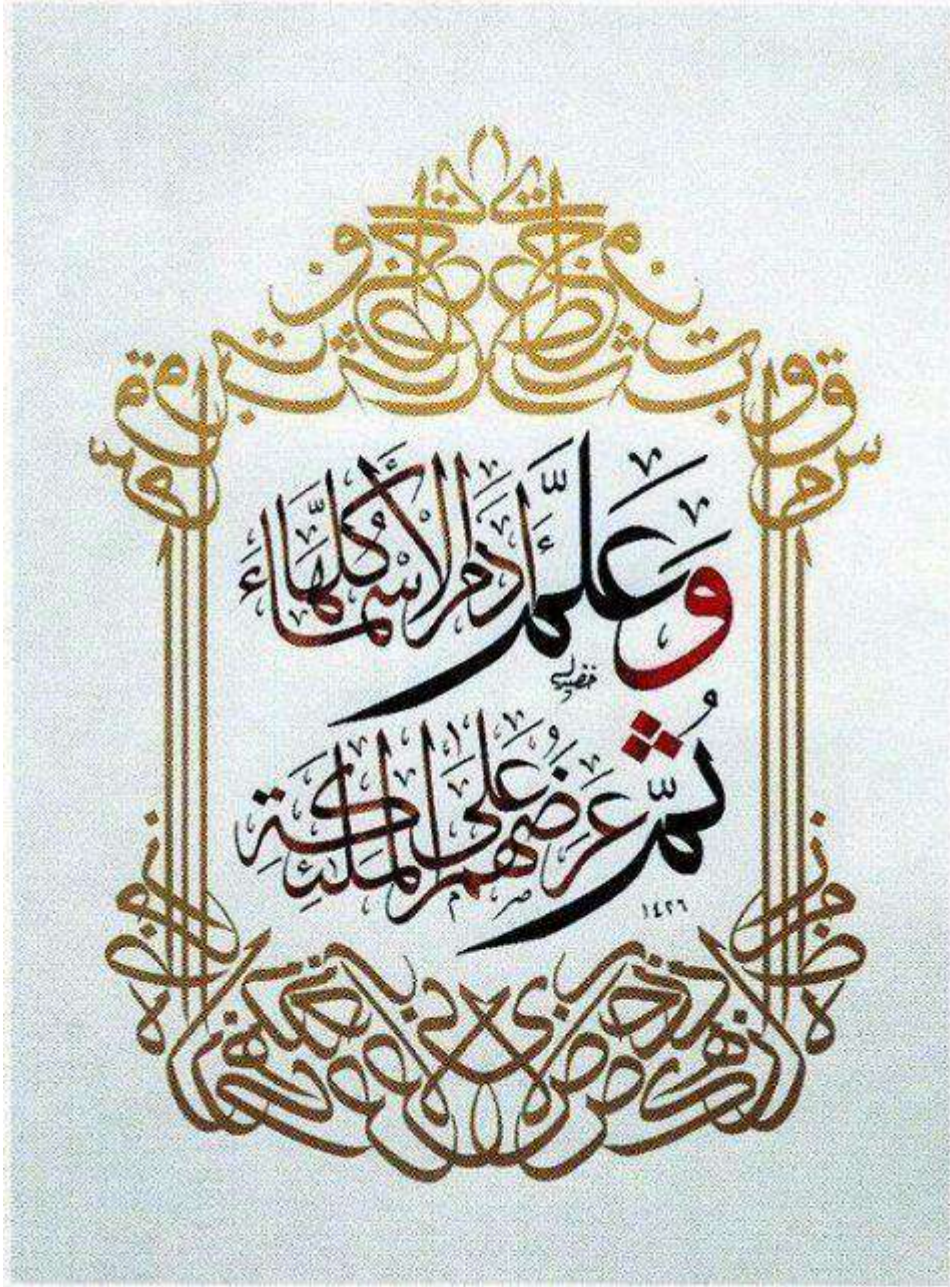 وَعَلَّمَ ءَادَمَ الْأَسْمَاءَ كُلَّهَا
ثُمَّ عَرَضَهُمْ عَلَى الْمَلَٰئِكَةِ
١٤٢٦